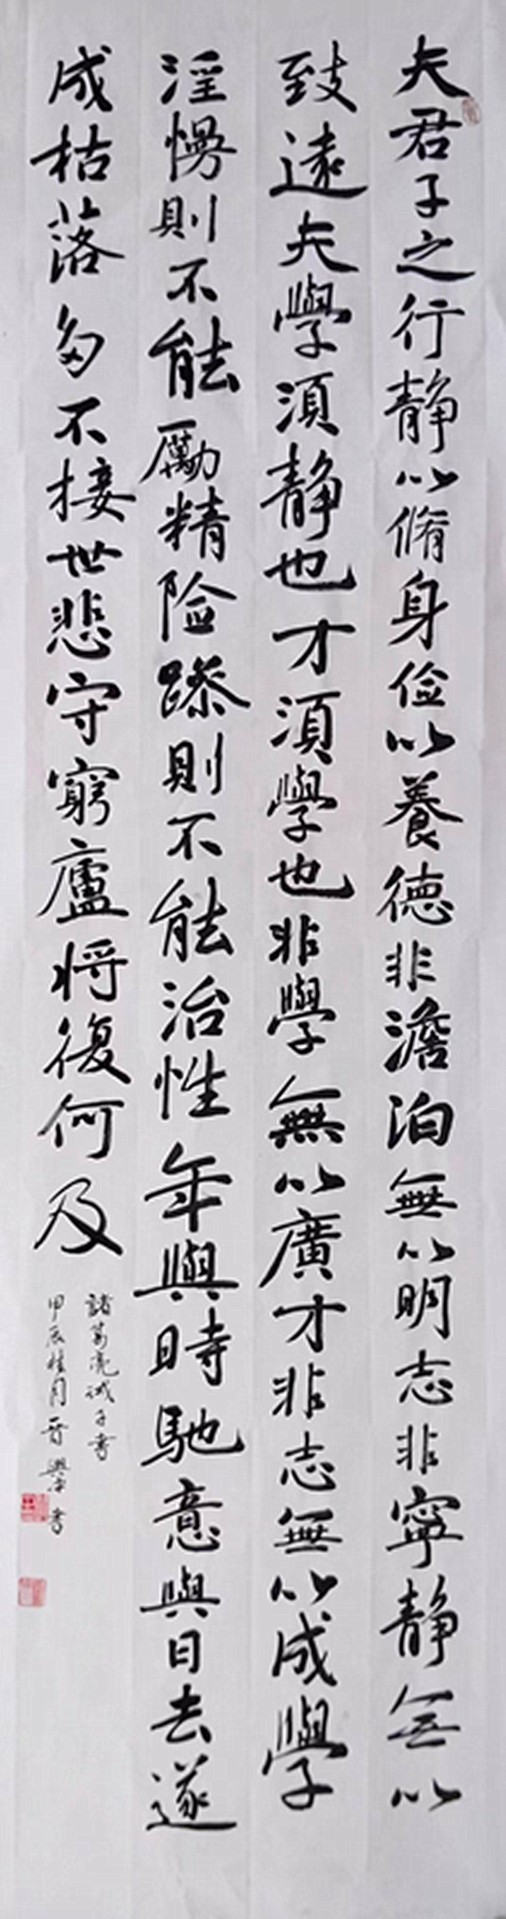 夫君子之行静以脩身俭以養德非澹泊無以明志非寧静無以
致遠夫學須静也才須學也非學無以廣才非志無以成學
淫慢則不能勵精险躁則不能治性年與時馳意與日去遂
成枯落多不接世悲守窮廬将復何及
諸葛亮诫子书
甲辰桂月晋书